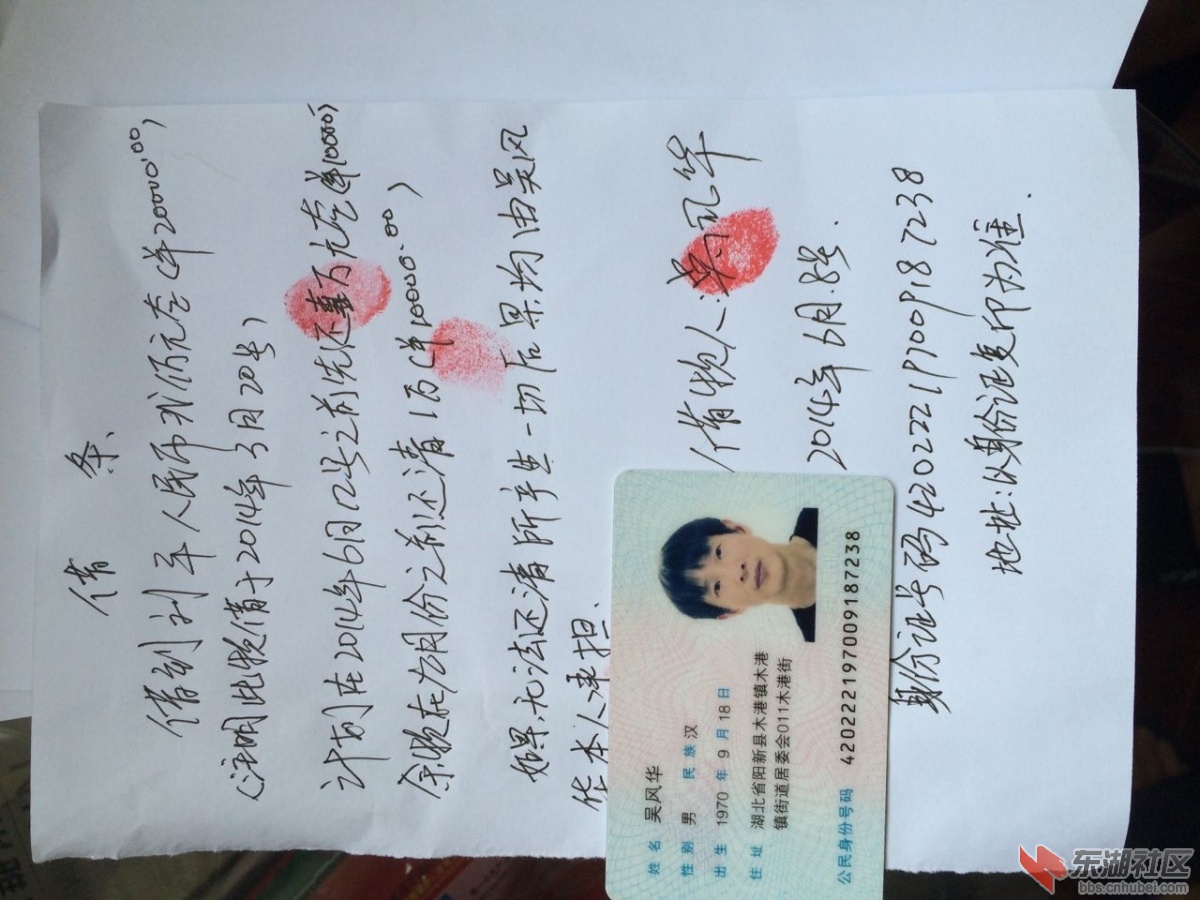 借条
借到刘平人民币贰仟元左(¥20000.00)
(注明此款借于2014年3月20号)
计划在2014年6月12号之前先还壹万元左(¥10000)
余款在 月份之前还清1万(¥10000.00)
如果无法还清所产生一切后果均由吴风
华本人承担.
借款人:吴风华
2014年6月.8号.
身份证号码420222197009187238
地址:以身份证复印为准.
姓名 吴风华
性别 男 民族 汉
出生 1970年9月18日
住址 湖北省阳新县木港镇木港
镇街道居委会011木港街
公民身份号码 420222197009187238
东湖社区
bbs.cnhubei.com